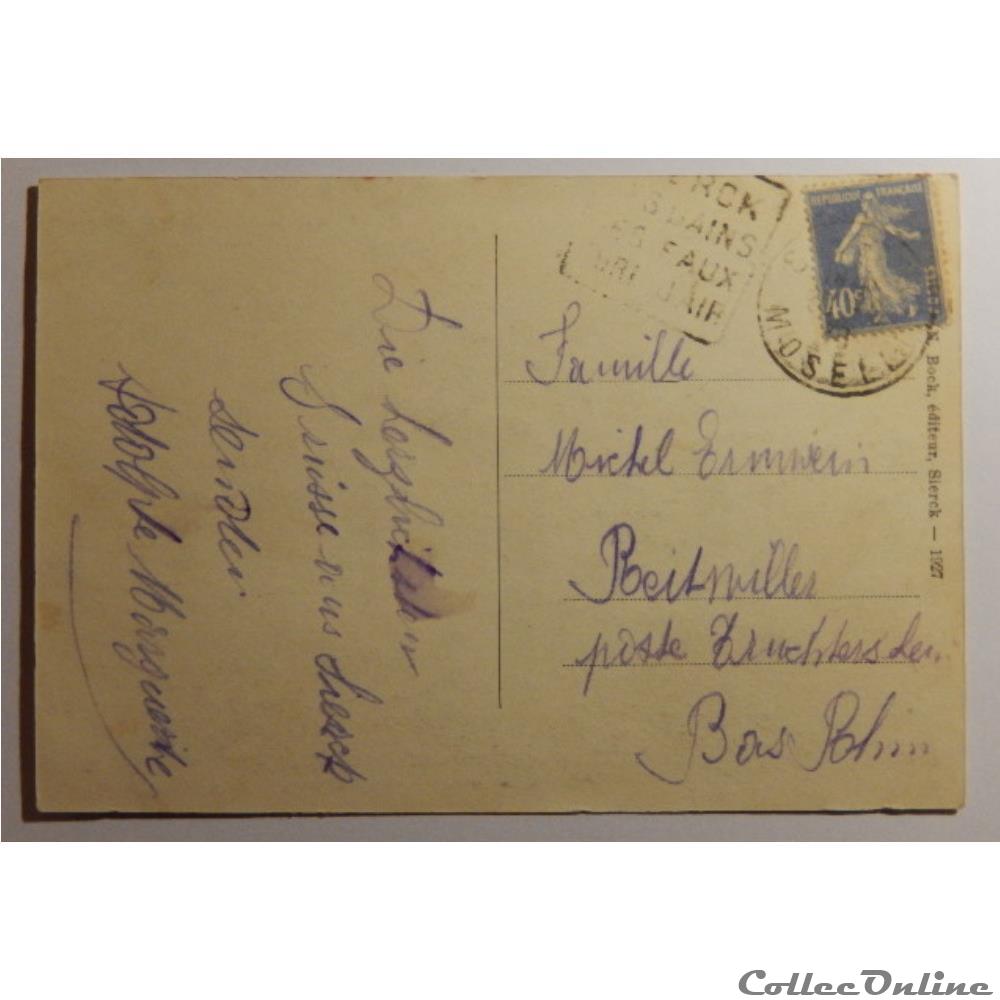 Die herzlichsten
Grüsse aus Sierck
senden
Adolphe Marguerite
RCK
BAINS
EAUX
D'AIR
MOSELLE
REPUBLIQUE FRANÇAISE
40c
Famille
Michel Ernwein
Reitwiller
poste Truchtersheim
Bas Rhin
Bock, éditeur, Sierck — 1927
CollecOnline